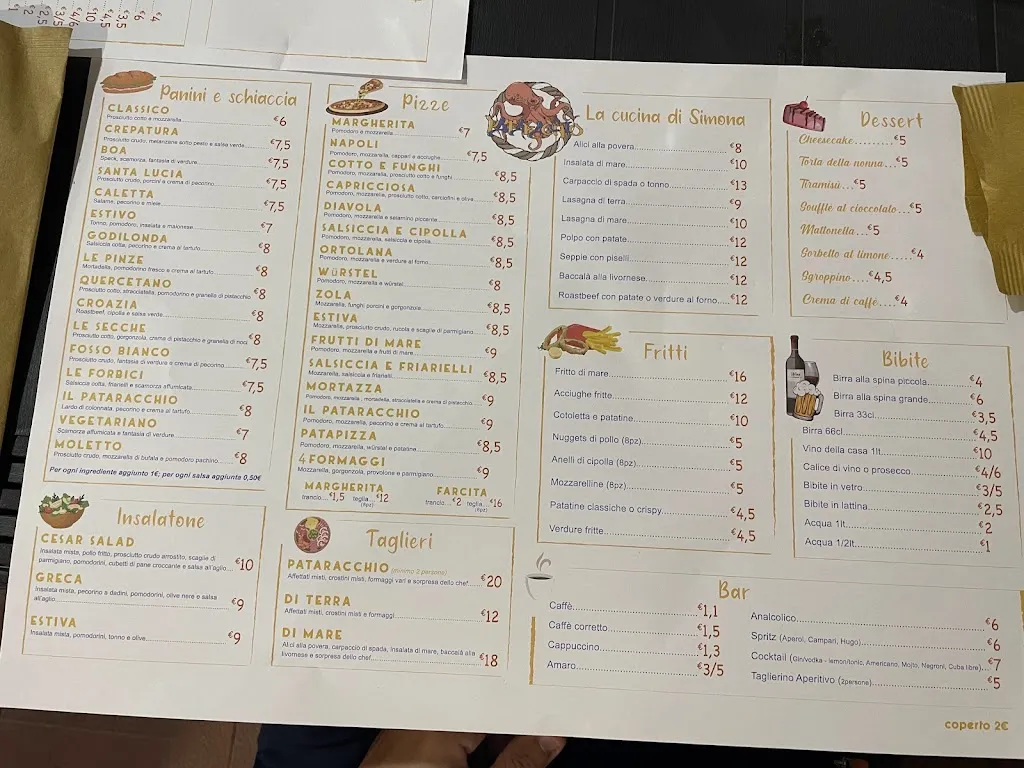 €4
€6
€3,5
€4,5
€10
€4/6
€3/5
€2,5
€2
€1
Panini e schiaccia
CLASSICO
Prosciutto cotto e mozzarella €6
CREPATURA
Prosciutto crudo, melanzane sotto pesto e salsa verde €7,5
BOA
Speck, scamorza, fantasia di verdure €7,5
SANTA LUCIA
Prosciutto crudo, porcini e crema di pecorino €7,5
CALETTA
Salame, pecorino e miele €7,5
ESTIVO
Tonno, pomodoro, insalata e maionese €7
GODILONDA
Salsiccia cotta, pecorino e crema al tartufo €8
LE PINZE
Mortadella, pomodorino fresco e crema al tartufo €8
QUERCETANO
Prosciutto cotto, stracciatella, pomodorino e granella di pistacchio €8
CROAZIA
Roastbeef, cipolla e salsa verde €8
LE SECCHE
Prosciutto cotto, gorgonzola, crema di pistacchio e granella di noci €8
FOSSO BIANCO
Prosciutto crudo, fantasia di verdure e crema di pecorino €7,5
LE FORBICI
Salsiccia cotta, friarielli e scamorza affumicata €7,5
IL PATARACCHIO
Lardo di colonnata, pecorino e crema al tartufo €8
VEGETARIANO
Scamorza affumicata e fantasia di verdure €7
MOLETTO
Prosciutto crudo, mozzarella di bufala e pomodoro pachino €8
Per ogni ingrediente aggiunto 1€; per ogni salsa aggiunta 0,50€
Insalatone
CESAR SALAD
Insalata mista, pollo fritto, prosciutto crudo arrostito, scaglie di
parmigiano, pomodorini, cubetti di pane croccante e salsa all'aglio €10
GRECA
Insalata mista, pecorino a dadini, pomodorini, olive nere e salsa
all'aglio €9
ESTIVA
Insalata mista, pomodorini, tonno e olive €9
Pizze
MARGHERITA
Pomodoro e mozzarella €7
NAPOLI
Pomodoro, mozzarella, capperi e acciughe €7,5
COTTO E FUNGHI
Pomodoro, mozzarella, prosciutto cotto e funghi €8,5
CAPRICCIOSA
Pomodoro, mozzarella, prosciutto cotto, carciofini e olive €8,5
DIAVOLA
Pomodoro, mozzarella e salamino piccante €8,5
SALSICCIA E CIPOLLA
Pomodoro, mozzarella, salsiccia e cipolla €8,5
ORTOLANA
Pomodoro, mozzarella e verdure al forno €8,5
WÜRSTEL
Pomodoro, mozzarella e würstel €8
ZOLA
Mozzarella, funghi porcini e gorgonzola €8,5
ESTIVA
Mozzarella, prosciutto crudo, rucola e scaglie di parmigiano €8,5
FRUTTI DI MARE
Pomodoro, mozzarella e frutti di mare €9
SALSICCIA E FRIARIELLI
Mozzarella, salsiccia e friarielli €8,5
MORTAZZA
Pomodoro, mozzarella, mortadella, stracciatella e crema di pistacchio €9
IL PATARACCHIO
Pomodoro, mozzarella, pecorino e crema al tartufo €9
PATAPIZZA
Pomodoro, mozzarella, würstel e patatine €8,5
4 FORMAGGI
Mozzarella, gorgonzola, provolone e parmigiano €9
MARGHERITA
trancio...€1,5 teglia...€12
(6pz)
FARCITA
trancio...€2 teglia...€16
(6pz)
Taglieri
PATARACCHIO (minimo 2 persone)
Affettati misti, crostini misti, formaggi vari e sorpresa dello chef €20
DI TERRA
Affettati misti, crostini misti e formaggi €12
DI MARE
Alici alla povera, carpaccio di spada, insalata di mare, baccalà alla
livornese e sorpresa dello chef €18
La cucina di Simona
Alici alla povera €8
Insalata di mare €10
Carpaccio di spada o tonno €13
Lasagna di terra €9
Lasagna di mare €10
Polpo con patate €12
Seppie con piselli €12
Baccalà alla livornese €12
Roastbeef con patate o verdure al forno €12
Fritti
Fritto di mare €16
Acciughe fritte €12
Cotoletta e patatine €10
Nuggets di pollo (8pz) €5
Anelli di cipolla (8pz) €5
Mozzarelline (8pz) €5
Patatine classiche o crispy €4,5
Verdure fritte €4,5
Dessert
Cheesecake.........€5
Torta della nonna...€5
Tiramisù...€5
Soufflè al cioccolato...€5
Mattonella.....€5
Sorbetto al limone.....€4
Sgroppino....€4,5
Crema di caffè....€4
Bibite
Birra alla spina piccola €4
Birra alla spina grande €6
Birra 33cl €3,5
Birra 66cl €4,5
Vino della casa 1lt €10
Calice di vino o prosecco €4/6
Bibite in vetro €3/5
Bibite in lattina €2,5
Acqua 1lt €2
Acqua 1/2lt €1
Bar
Caffè €1,1
Caffè corretto €1,5
Cappuccino €1,3
Amaro €3/5
Analcolico €6
Spritz (Aperol, Campari, Hugo) €6
Cocktail (Gin/vodka - lemon/tonic, Americano, Mojto, Negroni, Cuba libre) €7
Taglierino Aperitivo (2persone) €5
coperto 2€